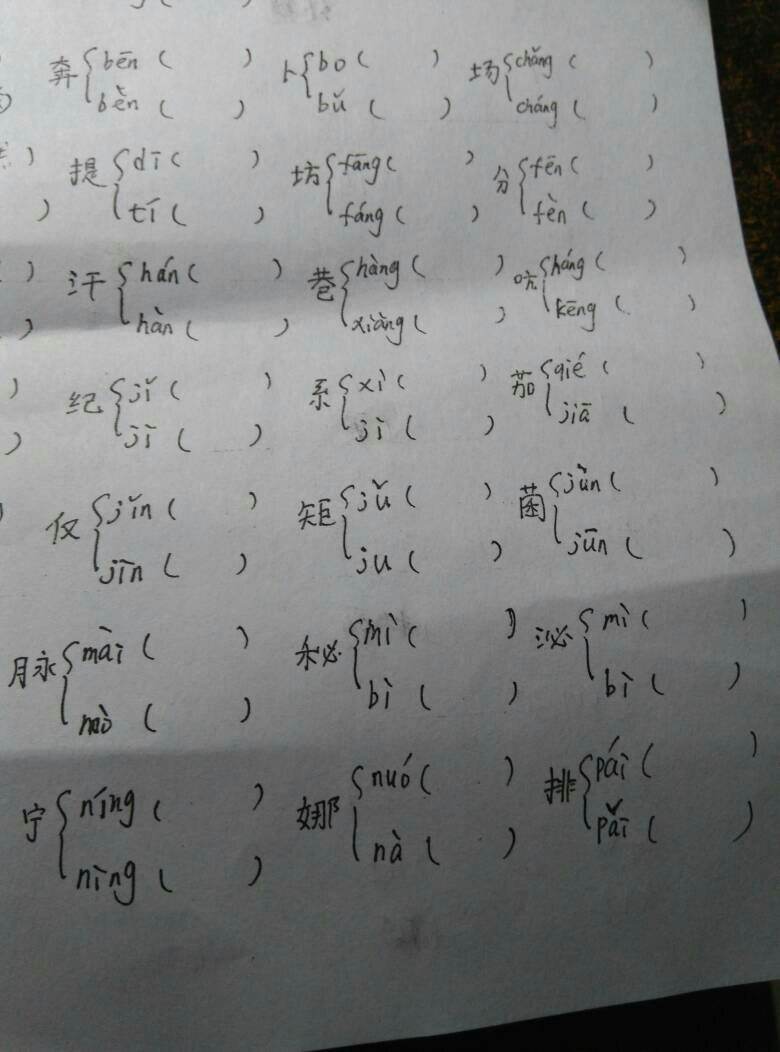 奔 bēn ( ) 卜 bo ( ) 场 chǎng ( )
bèn ( ) bǔ ( ) cháng ( )
) 提 dī ( ) 坊 fāng ( ) 分 fēn ( )
) tí ( ) fáng ( ) fèn ( )
) 汗 hán ( ) 巷 hàng ( ) 吭 háng ( )
) hàn ( ) xiàng ( ) kēng ( )
) 纪 jǐ ( ) 系 xì ( ) 茄 qié ( )
) jì ( ) jì ( ) jiā ( )
) 仅 jǐn ( ) 矩 jǔ ( ) 菌 jùn ( )
jìn ( ) ju ( ) jūn ( )
脉 mài ( ) 秘 mì ( ) 泌 mì ( )
mò ( ) bì ( ) bì ( )
宁 níng ( ) 娜 nuó ( ) 排 pái ( )
nìng ( ) nà ( ) pǎi ( )